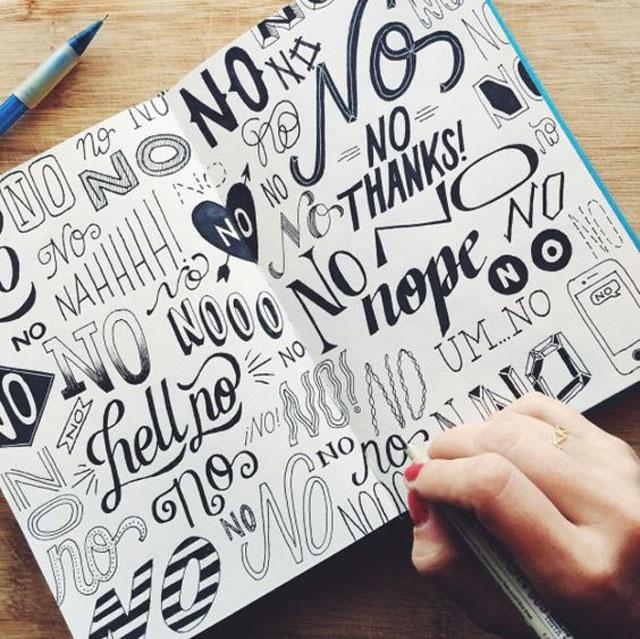 NO
NO
no
NO
NO
NO
No
NAHHHH!
no
NO
NO
NOOO
NO
NO
NO
hell no
NO!
NO
no
NO
no
NO
NO
No
NO
NO
no
No
NO
THANKS!
NO
NO
No
NO
NO
no
NO
NO
nope
NO
UM...NO
NO?
NO!
NO
NO
NO
no
NO